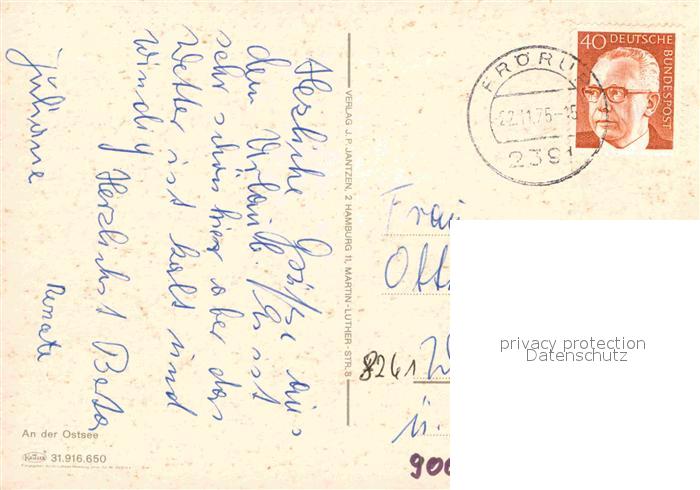 Herzliche Grüße aus
dem Urlaub. Es ist
sehr schön hier aber das
Wetter ist kalt und
windig Herzlichst Berta
Juliane Renate
VERLAG J. P. JANTZEN, 2 HAMBURG 11, MARTIN-LUTHER-STR. 8
An der Ostsee
Krüger 31.916.650
FRÖRUP
22.11.75-15
2391
40 DEUTSCHE
BUNDESPOST
Frau
Ott
8261 W
ü.
900
privacy protection
Datenschutz